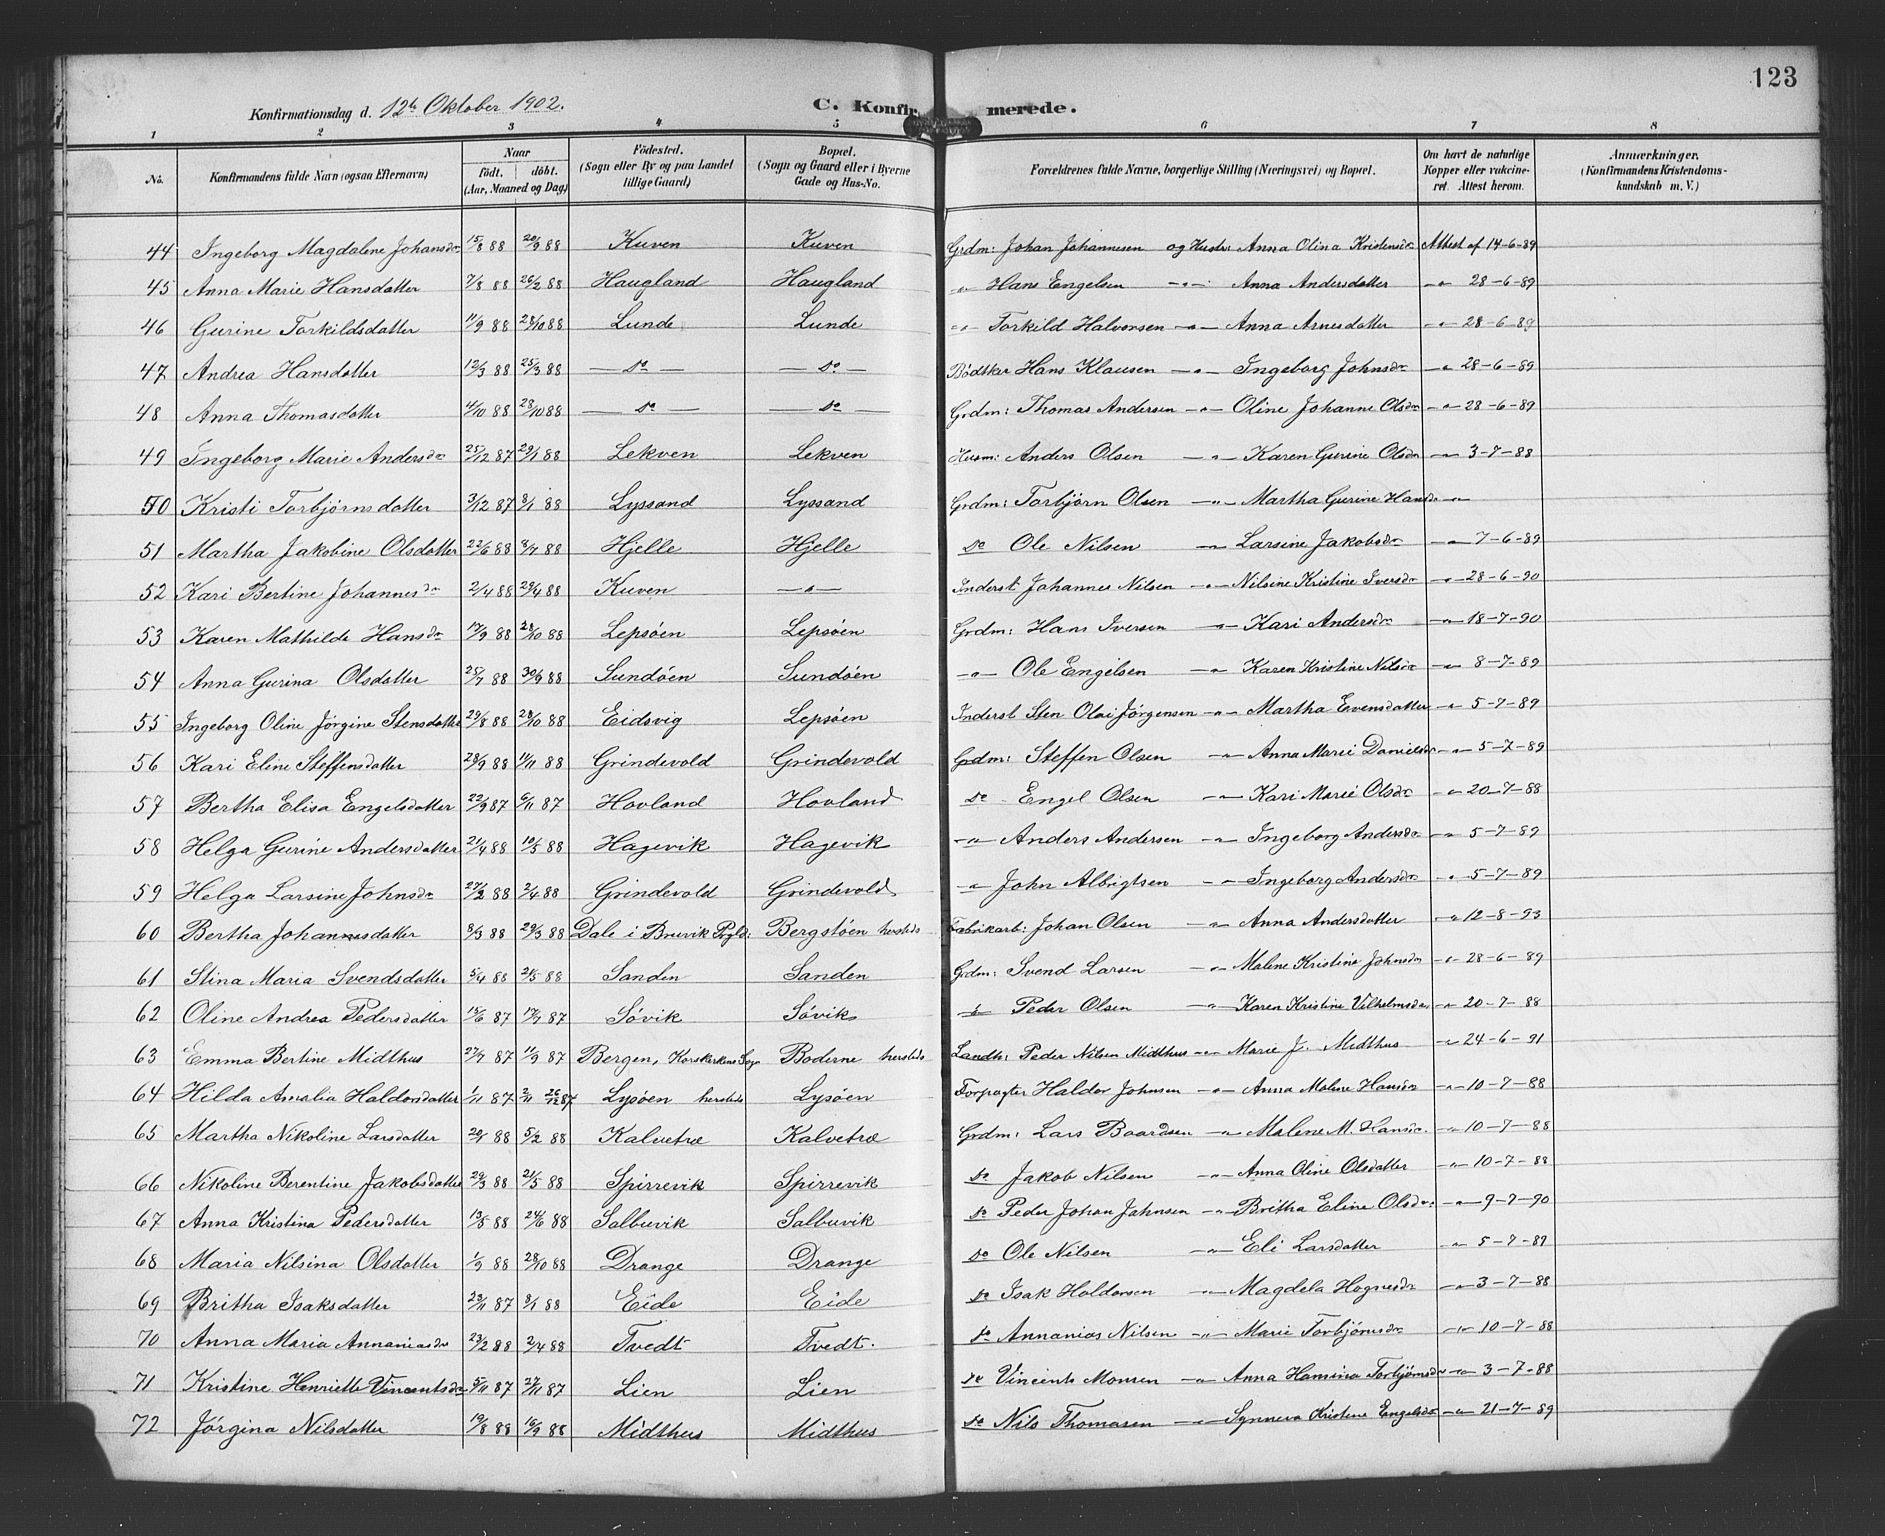 123
Konfirmationsdag d. 12te Oktober 1902. C. Konfirmerede.
1 2 3 4 5 6 7 8
No. Konfirmandens fulde Navn (ogsaa Efternavn) Naar födt. döbt. (Aar, Maaned og Dag) Födested. (Sogn eller By og paa Landet tillige Gaard) Bopæl. (Sogn og Gaard eller i Byerne Gade og Hus-No. Forældrenes fulde Navne, borgerlige Stilling (Næringsvei) og Bopæl. Om havt de naturlige Kopper eller vakcineret. Attest herom. Anmærkninger. (Konfirmandens Kristendomskundskab m. V.)
44 Ingeborg Magdalene Johansdr 15/8 88 20/9 88 Kuven Kuven Grdm: Johan Johannesen og Hustr: Anna Olina Kristensdr Attest af 14-6-89
45 Anna Marie Hansdatter 7/8 88 26/2 88 Haugland Haugland -"- Hans Engelsen -"- Anna Andersdatter -"- 28-6-89
46 Gurine Torkildsdatter 11/9 88 28/10 88 Lunde Lunde -"- Torkild Halvorsen -"- Anna Arnesdatter -"- 28-6-89
47 Andrea Hansdatter 12/3 88 25/3 88 — do — — do — Bödtker Hans Klausen -"- Ingeborg Johnsdr -"- 28-6-89
48 Anna Thomasdatter 4/10 88 28/10 88 — do — — do — Grdm: Thomas Andersen -"- Oline Johanne Olsdr -"- 28-6-89
49 Ingeborg Marie Andersdr 25/12 87 29/1 88 Lekven Lekven Husm: Anders Olsen -"- Karen Gurine Olsdr -"- 3-7-88
50 Kristi Torbjörnsdatter 3/12 87 8/1 88 Lyssand Lyssand Grdm: Torbjörn Olsen -"- Martha Gurine Hansdr -"-
51 Martha Jakobine Olsdatter 22/6 88 8/7 88 Hjelle Hjelle do Ole Nilsen -"- Larsine Jakobsdr -"- 7-6-89
52 Kari Bertine Johannesdr 2/4 88 29/4 88 Kuven -"- Inderst Johannes Nilsen -"- Nilsine Kristine Iversdr -"- 28-6-90
53 Karen Mathilde Hansdr 17/9 88 28/10 88 Lepsöen Lepsöen Grdm: Hans Iversen -"- Kari Andersdr -"- 18-7-90
54 Anna Gurina Olsdatter 25/7 88 30/9 88 Sundöen Sundöen -"- Ole Engelsen -"- Karen Kristine Nilsdr -"- 8-7-89
55 Ingeborg Oline Jörgine Stensdatter 29/8 88 28/10 88 Eidsvig Lepsöen Inderst Sten Olai Jörgensen -"- Martha Evensdatter -"- 5-7-89
56 Kari Eline Steffensdatter 28/9 88 11/11 88 Grindevold Grindevold Grdm: Steffen Olsen -"- Anna Marie Danielsdr -"- 5-7-89
57 Bertha Elisa Engelsdatter 22/9 87 6/11 87 Hovland Hovland do Engel Olsen -"- Kari Marie Olsdr -"- 20-7-88
58 Helga Gurine Andersdatter 21/4 88 10/5 88 Hagevik Hagevik -"- Anders Andersen -"- Ingeborg Andersdr -"- 5-7-89
59 Helga Larsine Johnsdr 27/2 88 2/4 88 Grindevold Grindevold -"- John Albrigtsen -"- Ingeborg Andersdr -"- 5-7-89
60 Bertha Johannesdatter 8/3 88 29/3 88 Dale i Bruvik Prgld: Bergstöen hersteds Fabrikarb: Johan Olsen -"- Anna Andersdatter -"- 12-8-93
61 Stina Maria Svendsdatter 5/4 88 21/5 88 Sanden Sanden Grdm: Svend Larsen -"- Malene Kristine Johnsdr -"- 28-6-89
62 Oline Andrea Pedersdatter 15/6 87 17/7 87 Sövik Sövik do Peder Olsen -"- Karen Kristine Vilhelmsdr -"- 20-7-88
63 Emma Bertine Midthus 27/7 87 11/9 87 Bergen, Korskirkens Sogn Boderne hersteds Landh: Peder Nilsen Midthus -"- Marie J. Midthus -"- 24-6-91
64 Hilda Amalia Haldorsdatter 1/11 87 2/11 26/12 87 Lysöen hersteds Lysöen Forpagter Haldor Johnsen -"- Anna Malene Hansdr -"- 10-7-88
65 Martha Nikoline Larsdatter 20/1 88 5/2 88 Kalvetræ Kalvetræ Grdm: Lars Baardsen -"- Malene M. Hansdr. -"- 10-7-88
66 Nikoline Berentine Jakobsdatter 29/3 88 21/5 88 Spirrevik Spirrevik do Jakob Nilsen -"- Anna Oline Olsdatter -"- 10-7-88
67 Anna Kristina Pedersdatter 13/5 88 24/6 88 Salbuvik Salbuvik do Peder Johan Jahnsen -"- Britha Eline Olsdr: -"- 9-7-90
68 Maria Nilsina Olsdatter 1/9 88 28/10 88 Drange Drange do Ole Nilsen -"- Eli Larsdatter -"- 5-7-89
69 Britha Isaksdatter 23/11 87 8/1 88 Eide Eide do Isak Haldorsen -"- Magdela Hognesdr -"- 3-7-88
70 Anna Maria Annaniasdr 23/2 88 2/4 88 Tvedt Tvedt. do Annanias Nilsen -"- Marie Torbjörnsdr -"- 10-7-88
71 Kristine Henriette Vincentsdr 5/11 87 27/11 87 Lien Lien do Vincents Monsen -"- Anna Hansina Torbjörnsdr -"- 3-7-88
72 Jörgina Nilsdatter 19/8 88 16/9 88 Midthus Midthus do Nils Thomasen -"- Synneva Kristene Engelsdr -"- 21-7-89